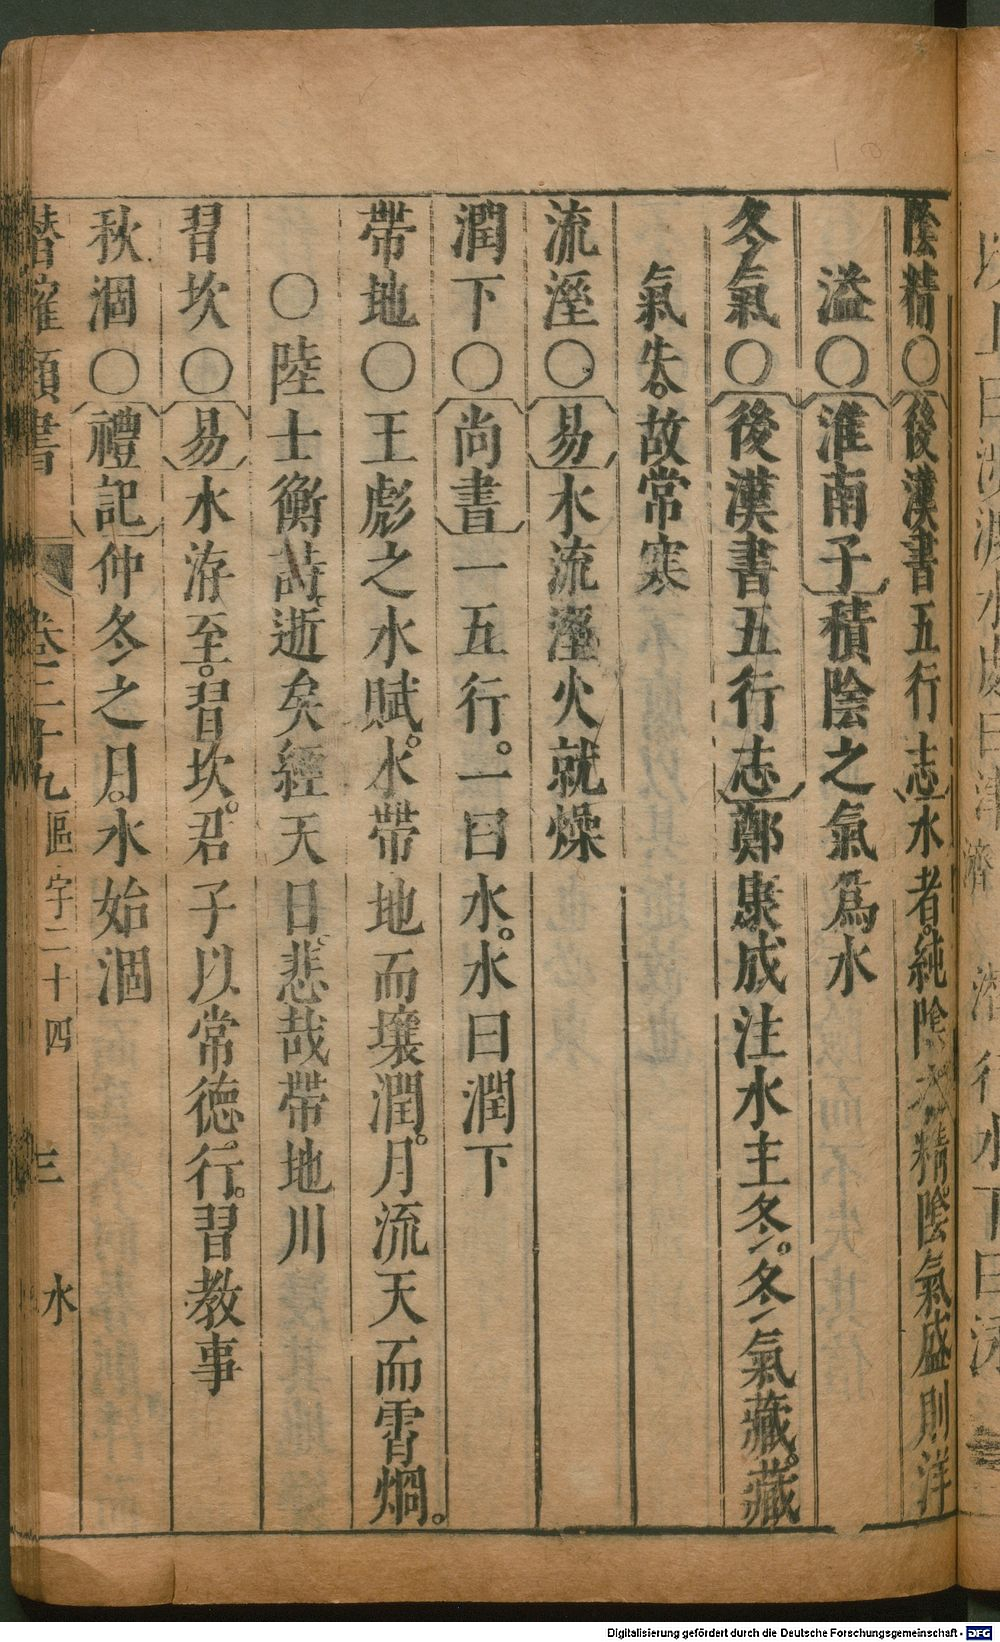 陰精〇後漢書五行志水者純陰之精陰氣盛則洋
溢〇淮南子積陰之氣爲水
冬氣〇後漢書五行志鄭康成注水主冬冬氣藏藏
氣失故常寒
流溼〇易水流溼火就燥
潤下〇尚書一五行。一曰水。水曰潤下
帶地〇王彪之水賦。水帶地而壤潤。月流天而霄烱。
〇陸士衡詩逝矣經天日悲哉帶地川
習坎〇易水洊至。習坎。君子以常德行。習教事
秋涸〇禮記仲冬之月。水始涸
潛確類書 卷三十九 區宇二十四 三 水
Digitalisierung gefördert durch die Deutsche Forschungsgemeinschaft - DFG